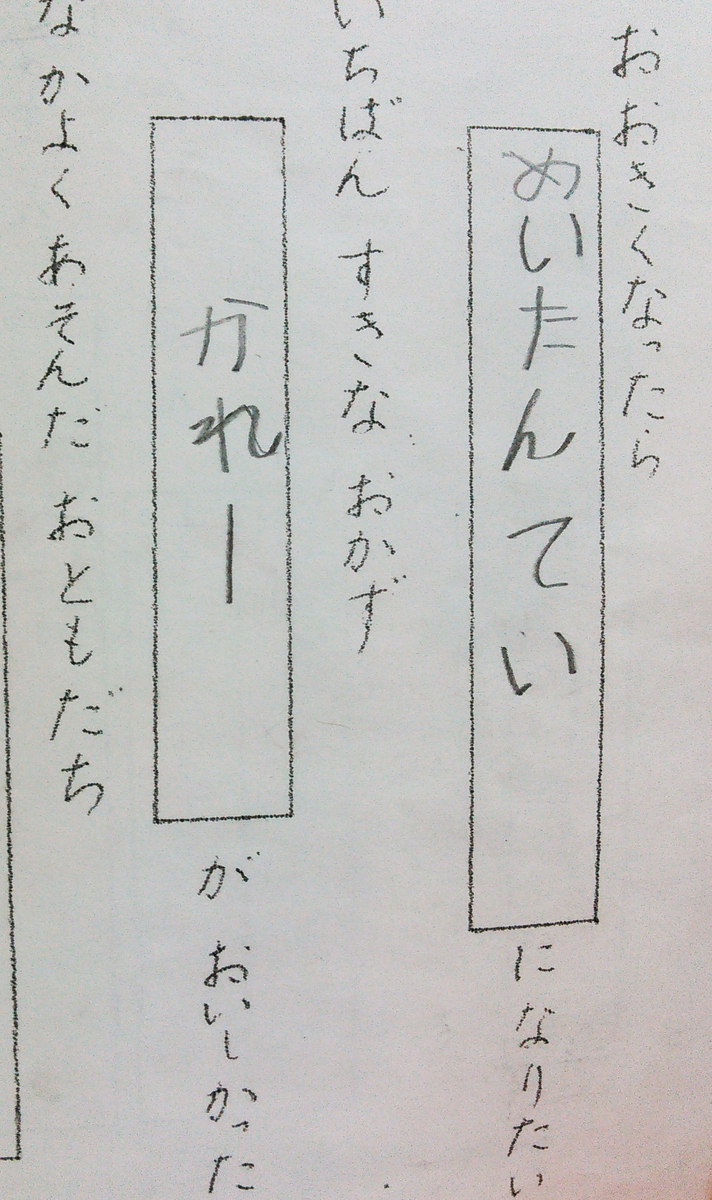 おおきくなったら
めいたんてい
になりたい
いちばん すきな おかず
かれー
が おいしかった
なかよく あそんだ おともだち